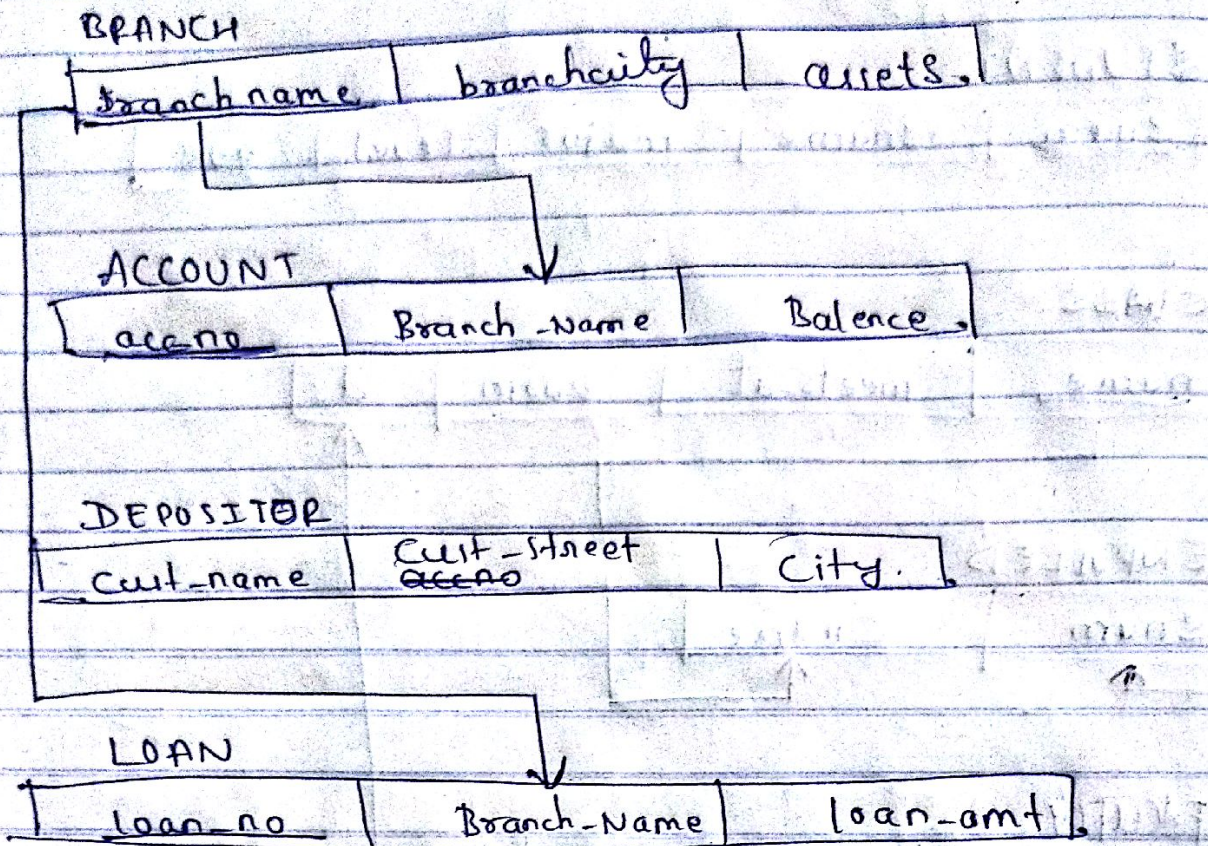 BRANCH
branchname branchcity assets.
ACCOUNT
accno Branch_Name Balence.
DEPOSITOR
cust_name Cust_street City.
accno
LOAN
loan_no Branch_Name loan_amt